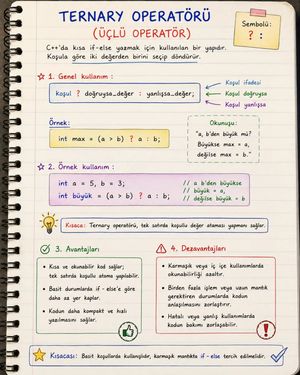 TERNARY OPERATORÜ
(ÜÇLÜ OPERATÖR)
Sembolü:
? :
C++'da kısa if-else yazmak için kullanılan bir yapıdır.
Koşula göre iki değerden birini seçip döndürür.
1. Genel kullanım :
koşul ? doğruysa_değer : yanlışsa_değer;
Koşul ifadesi
Koşul doğruysa
Koşul yanlışsa
Örnek:
int max = (a > b) ? a : b;
Okunuşu:
"a, b'den büyük mü?
Büyükse max = a,
değilse max = b."
2. Örnek kullanım :
int a = 5, b = 3;
int büyük = (a > b) ? a : b;
// a b'den büyükse
// büyük = a,
// değilse büyük = b
Kısaca: Ternary operatörü, tek satırda koşullu değer ataması yapmanı sağlar.
3. Avantajları
• Kısa ve okunabilir kod sağlar;
tek satırda koşullu atama yapılabilir.
• Basit durumlarda if-else'e göre
daha az yer kaplar.
• Kodun daha kompakt ve hızlı
yazılmasını sağlar.
4. Dezavantajları
• Karmaşık veya iç içe kullanımlarda
okunabilirliği azaltır.
• Birden fazla işlem veya uzun mantık
gerektiren durumlarda kodun
anlaşılmasını zorlaştırır.
• Hatalı veya yanlış kullanımlarda
kodun bakımı zorlaşabilir.
Kısacası: Basit koşullarda kullanışlıdır, karmaşık mantıkta if-else tercih edilmelidir.